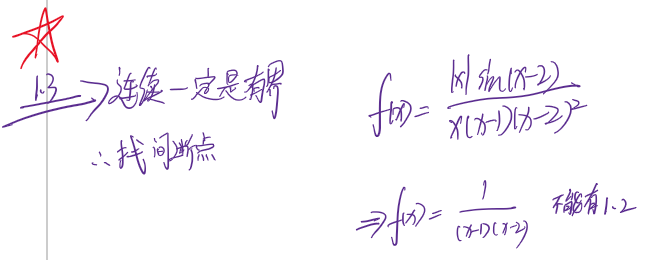 1.3 → 连续一定是有界
∴找间断点
f(x) = |x| sin(x-2) / x(x-1)(x-2)²
⇒ f(x) = 1 / (x-1)(x-2) 不能有1.2